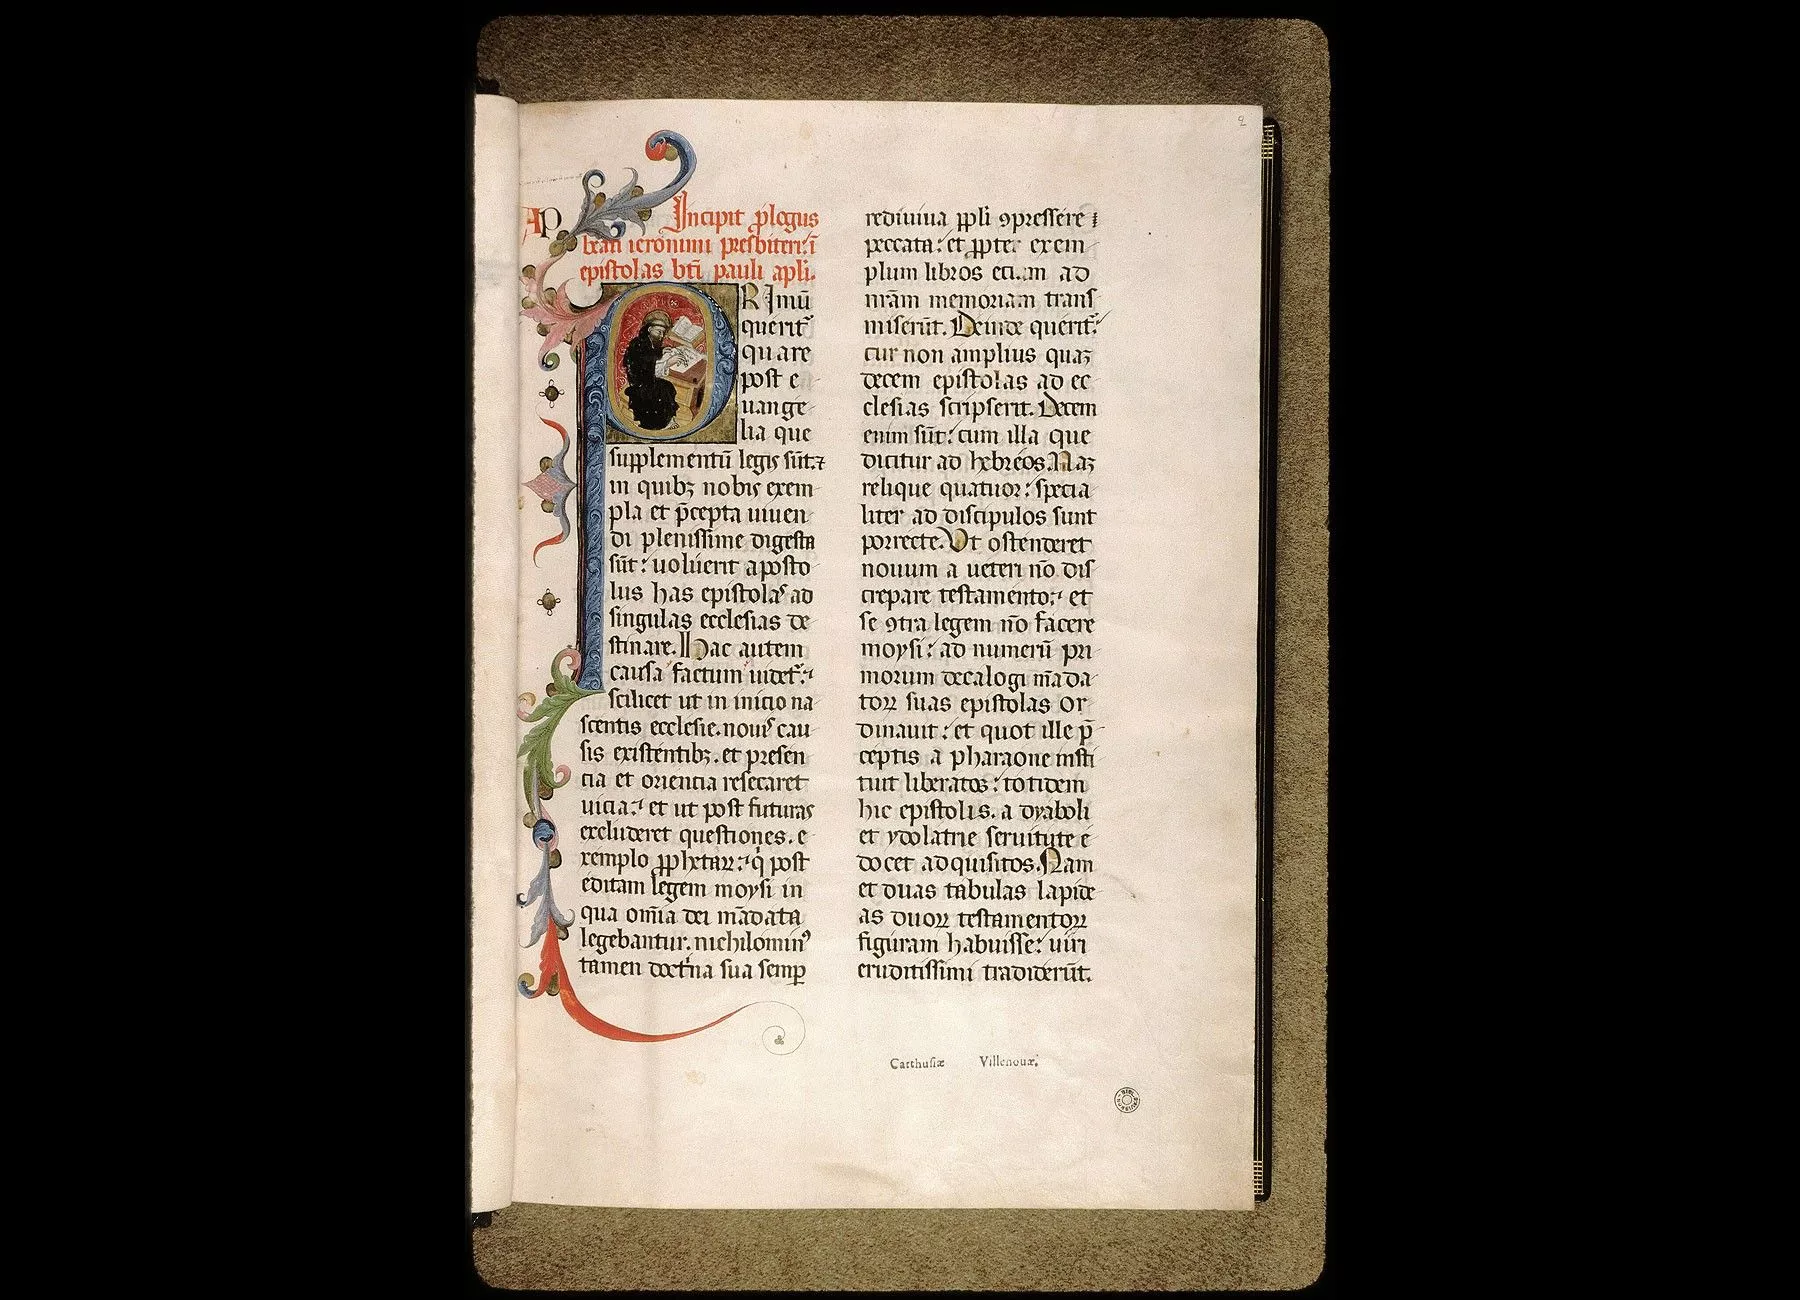 Ap
Incipit p̄logus
beati ieronimi presbiteri: ī
epistolas bt̄i pauli apl̄i.
PRimū
querit᷑
quare
post e
uange
lia que
supplementū legis sūt: ⁊
in quibꝫ nobis exem
pla et p̄cepta uiuen
di plenissime digesta
sūt: uoluerit aposto
lus has epistolas ad
singulas ecclesias de
stinare. Hac autem
causa factum uidet᷑:
scilicet ut in inicio na
scentis ecclesie. nouis cau
sis existentibꝫ. et presen
cia et oriencia resecaret
uicia: et ut post futuras
excluderet questiones. e
xemplo ꝓphetaꝝ: q̇ post
editam legem moysi in
qua om̄ia dei mādata
legebantur. nichilominꝰ
tamen doctͥna sua semꝑ
rediuiua ꝓpl̄i ꝯpressere
peccata: et ꝓpter exem
plum libros eciam ad
nr̄am memoriam trans
miserūt. Deinde querit᷑:
cur non amplius quaꝫ
decem epistolas ad ec
clesias scripserit. Decem
enim sūt: cum illa que
dicitur ad hebreos. Naꝫ
relique quatuor: specia
liter ad discipulos sunt
porrecte. Ut ostenderet
nouum a ueteri nō dis
crepare testamento: et
se ꝯtra legem nō facere
moysi: ad numerū pri
morum decalogi māda
toꝝ suas epistolas or
dinauit: et quot ille p̄
ceptis a pharaone insti
tuit liberatos: totidem
hic epistolis. a dyaboli
et ydolatrie seruitute e
docet adquisitos. Nam
et duas tabulas lapide
as duoꝝ testamentoꝝ
figuram habuisse: uiri
eruditissimi tradiderūt.
Carthusiæ Villenouæ.